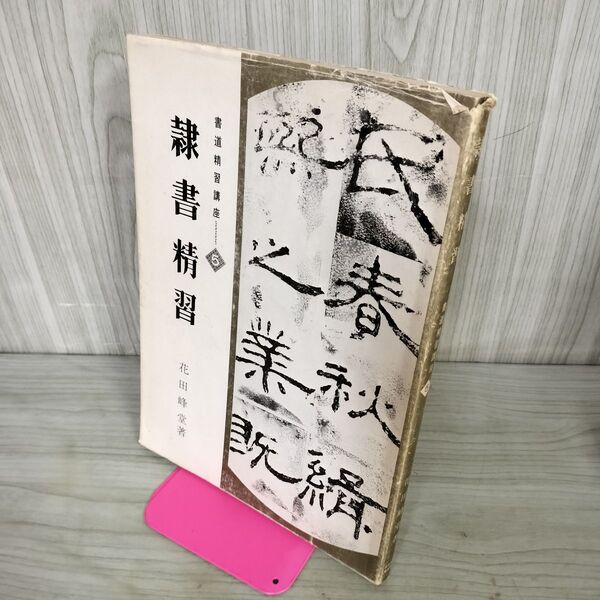 書道精習講座………5
隷書精習
花田峰堂著
民春秋緝
熙之業既